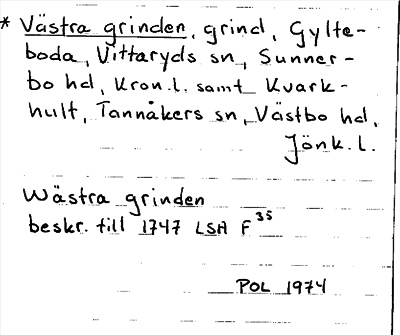 * Västra grinden, grind, Gylte-
boda, Vittaryds sn, Sunner-
bo hd, Kron.l. samt Kvark-
hult, Tannåkers sn, Västbo hd,
Jönk.l.
Wästra grinden
beskr. till 1747 LSA F 35
POL 1974